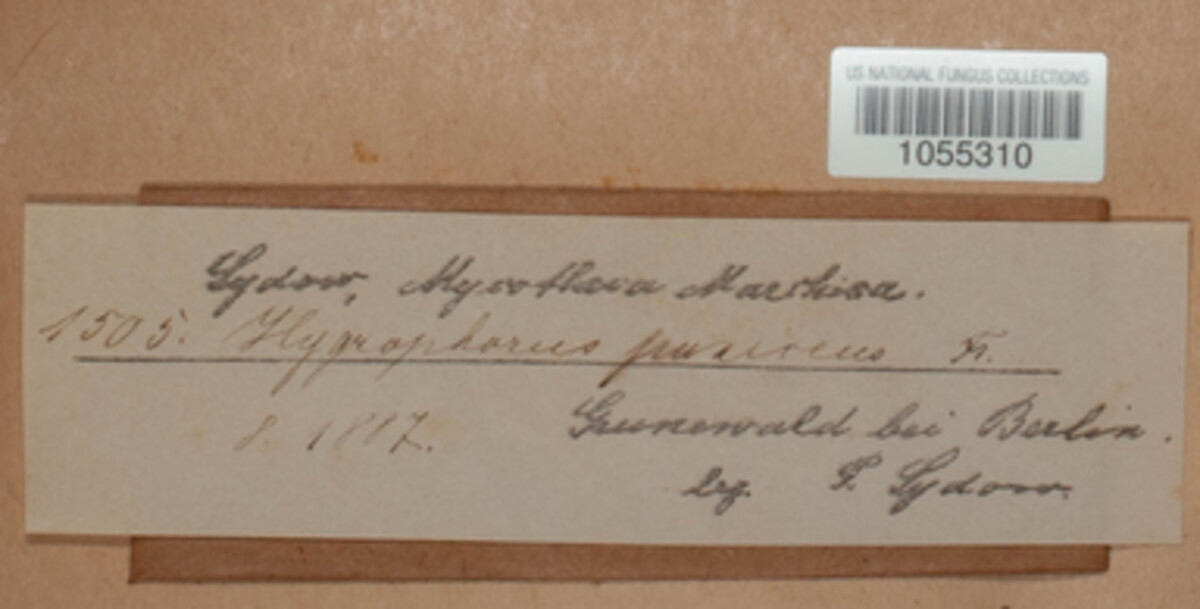 US NATIONAL FUNGUS COLLECTIONS
1055310
Sydow, Mycotheca Marchica.
1505. Hygrophorus puniceus Fr.
8. 1887.
Grunewald bei Berlin.
leg. P. Sydow.